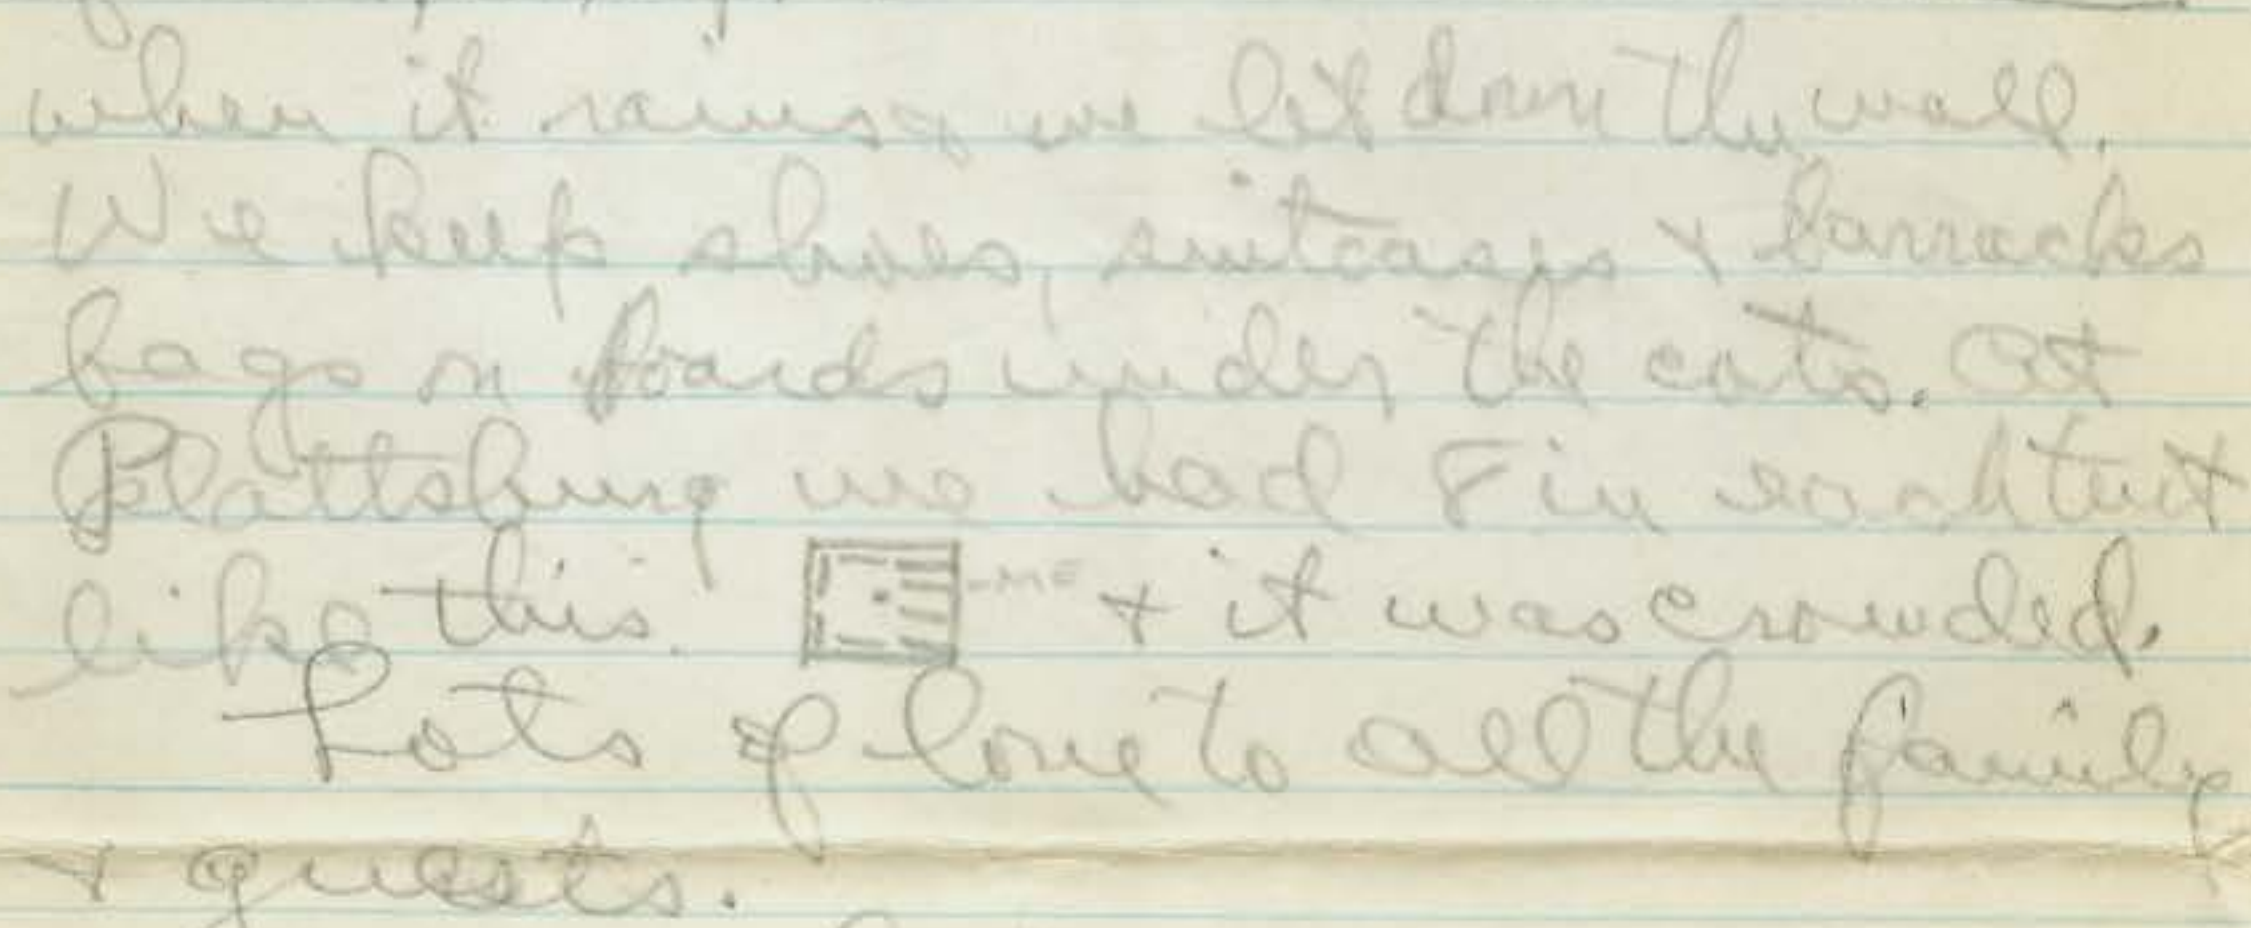 when it rains, we let down the wall.
We keep shoes, suitcases & barracks
bags on boards under the cots. At
Plattsburg we had 8 in each tent
like this. -ME & it was crowded.
Lots of love to all the family
& guests.